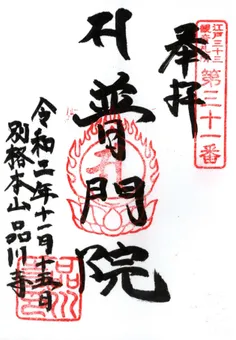 江戸三十三
観音札所
第三十一番
奉拝
普門院
令和二年十一月十五日
別格本山品川寺